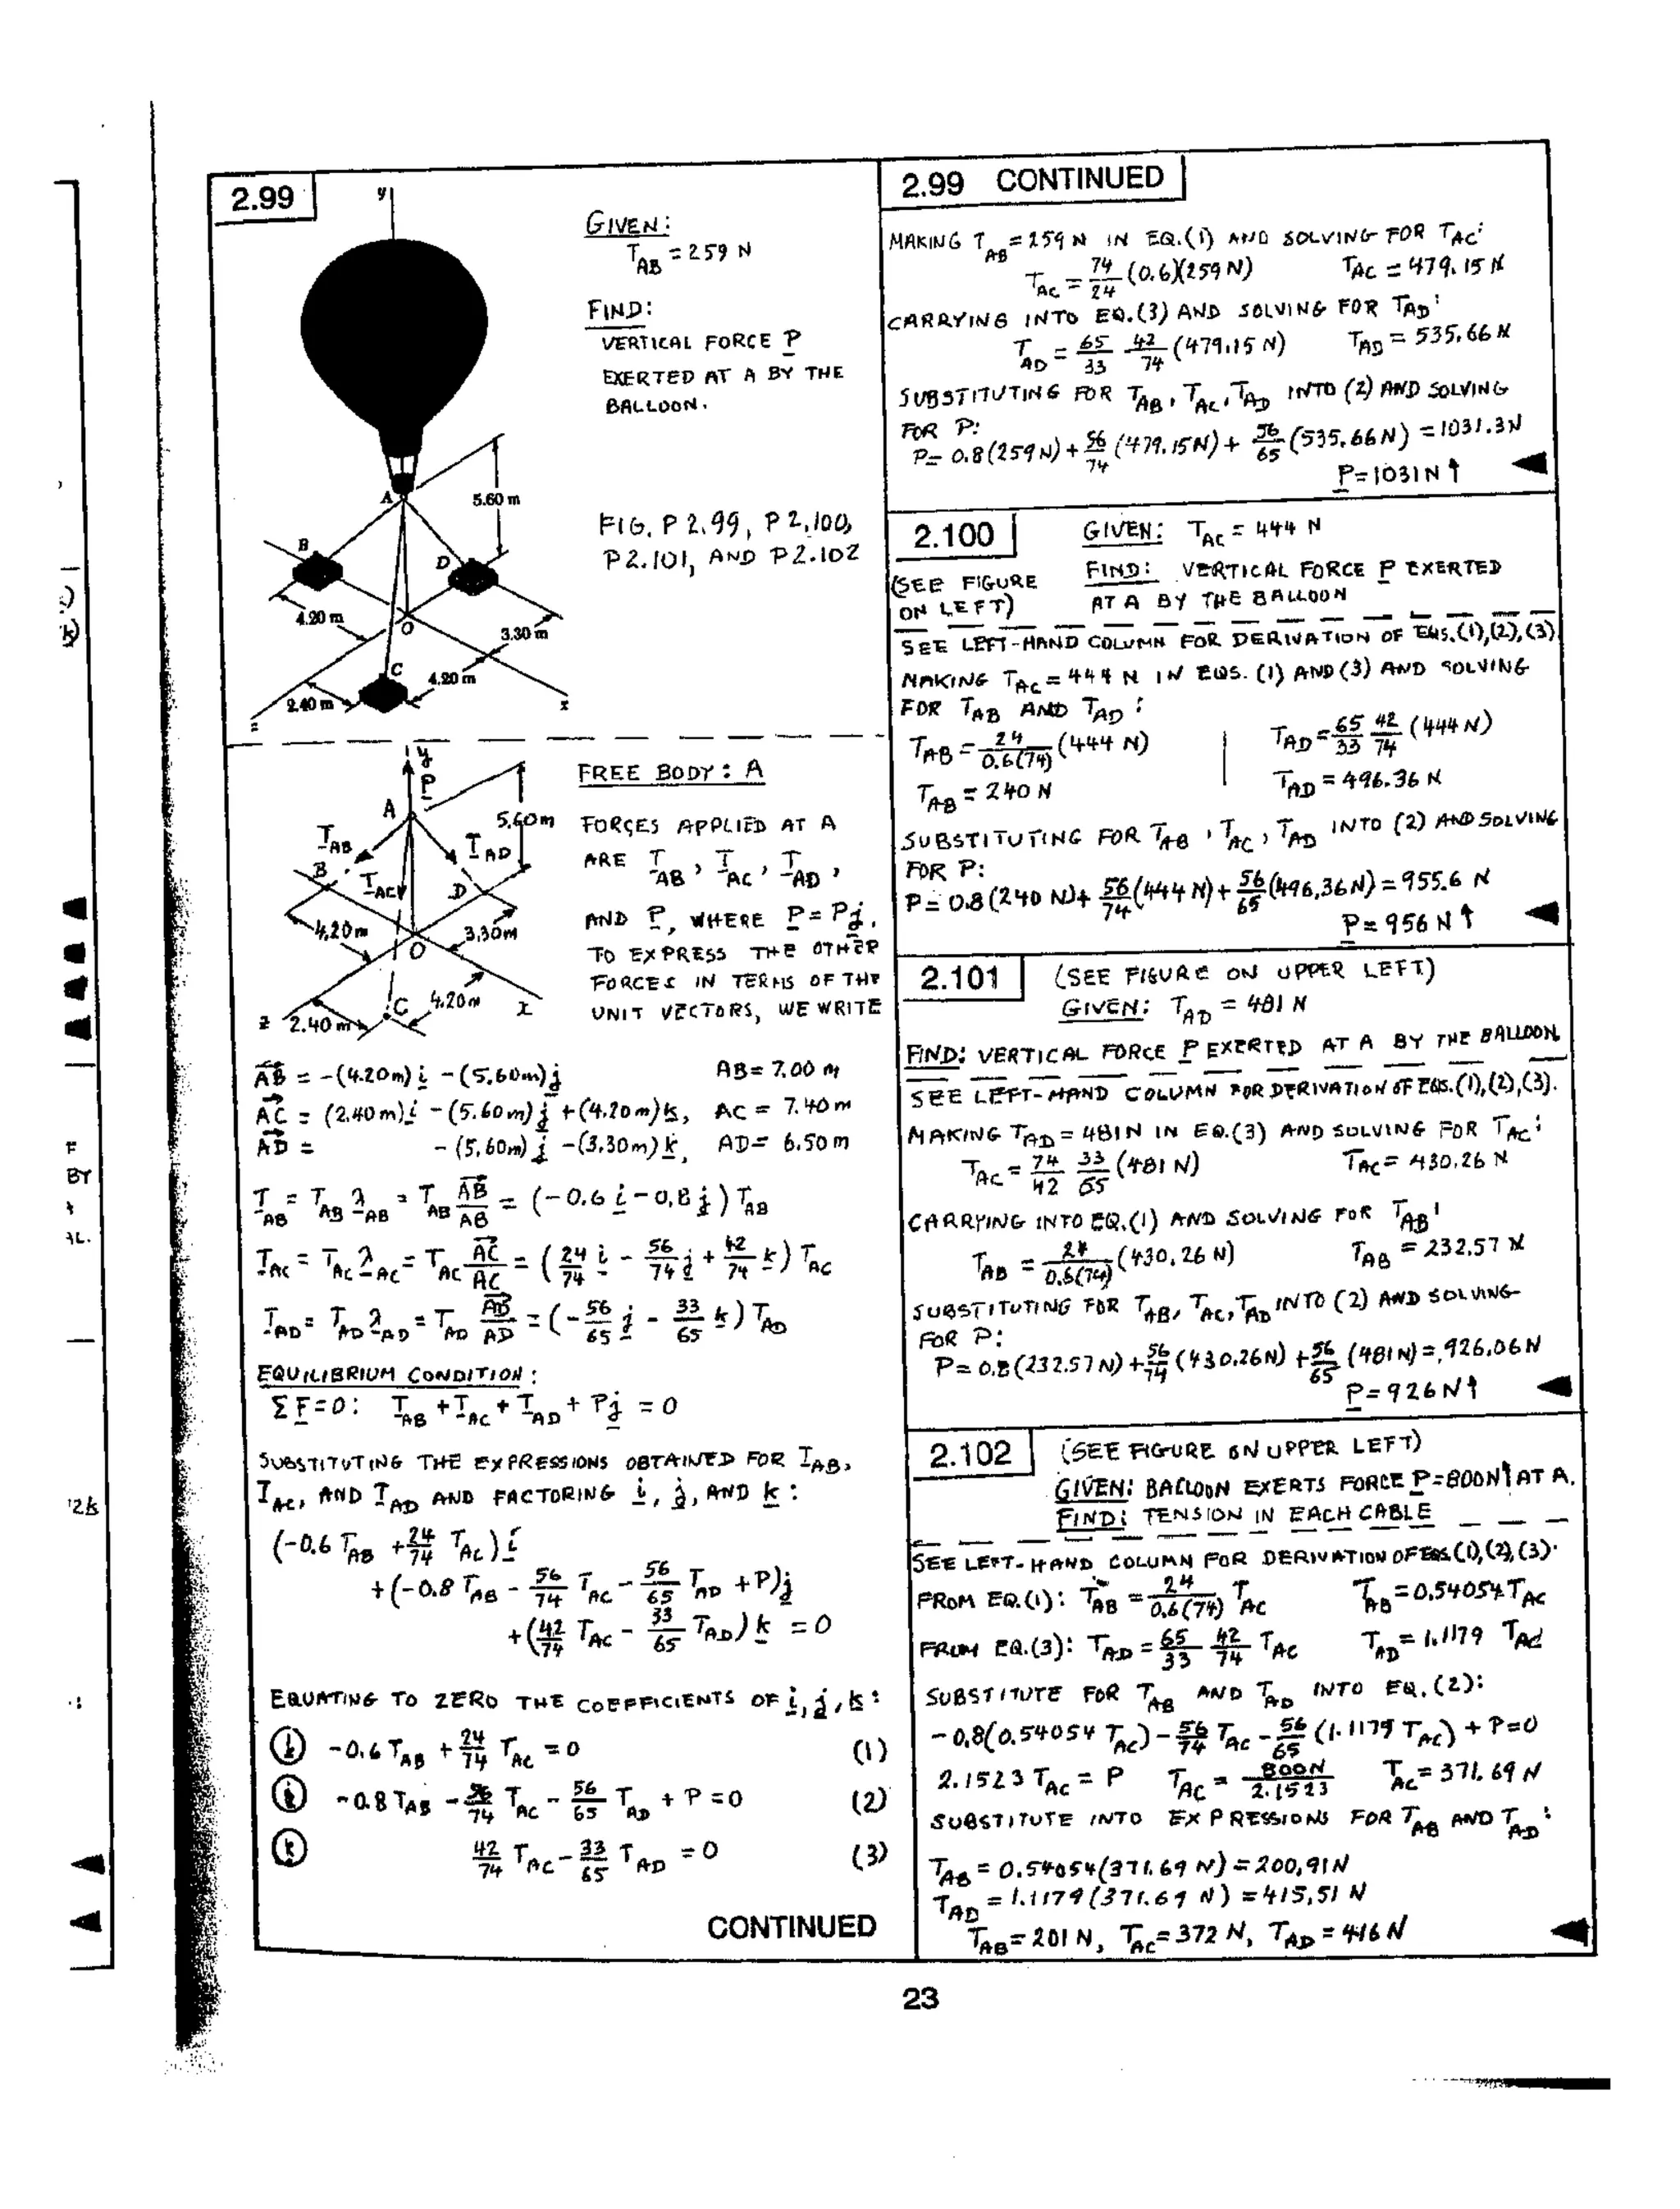 2.99
y
GIVEN:
T_AB = 259 N
FIND:
VERTICAL FORCE P
EXERTED AT A BY THE
BALLOON.
A
5.60 m
FIG. P 2.99, P 2.100,
P2.101, AND P2.102
B
D
4.20 m
O
3.30 m
C
4.20 m
2.40 m
x
z
y
P
FREE BODY: A
A
5.60m
FORCES APPLIED AT A
T_AB
T_AD
ARE T_AB, T_AC, T_AD,
B
T_AC
D
AND P, WHERE P = Pj.
4.20m
3.30m
O
TO EXPRESS THE OTHER
FORCES IN TERMS OF THE
C 4.20m x
UNIT VECTORS, WE WRITE
z 2.40 m
AB = -(4.20m) i - (5.60m) j AB = 7.00 m
AC = (2.40 m) i - (5.60 m) j + (4.20 m) k, AC = 7.40 m
AD = - (5.60m) j - (3.30m) k, AD = 6.50 m
T_AB = T_AB λ_AB = T_AB AB/AB = (-0.6 i - 0.8 j) T_AB
T_AC = T_AC λ_AC = T_AC AC/AC = (24/74 i - 56/74 j + 42/74 k) T_AC
T_AD = T_AD λ_AD = T_AD AD/AD = (- 56/65 j - 33/65 k) T_AD
EQUILIBRIUM CONDITION:
ΣF = 0: T_AB + T_AC + T_AD + Pj = 0
SUBSTITUTING THE EXPRESSIONS OBTAINED FOR T_AB,
T_AC, AND T_AD AND FACTORING i, j, AND k:
(-0.6 T_AB + 24/74 T_AC) i
+ (-0.8 T_AB - 56/74 T_AC - 56/65 T_AD + P) j
+ (42/74 T_AC - 33/65 T_AD) k = 0
EQUATING TO ZERO THE COEFFICIENTS OF i, j, k:
i -0.6 T_AB + 24/74 T_AC = 0 (1)
j -0.8 T_AB - 56/74 T_AC - 56/65 T_AD + P = 0 (2)
k 42/74 T_AC - 33/65 T_AD = 0 (3)
CONTINUED
2.99 CONTINUED
MAKING T_AB = 259 N IN EQ.(1) AND SOLVING FOR T_AC:
T_AC = 74/24 (0.6)(259 N) T_AC = 479.15 N
CARRYING INTO EQ.(3) AND SOLVING FOR T_AD:
T_AD = 65/33 42/74 (479.15 N) T_AD = 535.66 N
SUBSTITUTING FOR T_AB, T_AC, T_AD INTO (2) AND SOLVING
FOR P:
P = 0.8(259 N) + 56/74 (479.15 N) + 56/65 (535.66 N) = 1031.3 N
P = 1031 N ↑
2.100
GIVEN: T_AC = 444 N
(SEE FIGURE
ON LEFT)
FIND: VERTICAL FORCE P EXERTED
AT A BY THE BALLOON
SEE LEFT-HAND COLUMN FOR DERIVATION OF EQS.(1),(2),(3)
MAKING T_AC = 444 N IN EQS. (1) AND (3) AND SOLVING
FOR T_AB AND T_AD:
T_AB = 24/0.6(74) (444 N) T_AD = 65/33 42/74 (444 N)
T_AB = 240 N T_AD = 496.36 N
SUBSTITUTING FOR T_AB, T_AC, T_AD INTO (2) AND SOLVING
FOR P:
P = 0.8(240 N) + 56/74 (444 N) + 56/65 (496.36 N) = 955.6 N
P = 956 N ↑
2.101
(SEE FIGURE ON UPPER LEFT)
GIVEN: T_AD = 481 N
FIND: VERTICAL FORCE P EXERTED AT A BY THE BALLOON.
SEE LEFT-HAND COLUMN FOR DERIVATION OF EQS.(1),(2),(3).
MAKING T_AD = 481 N IN EQ.(3) AND SOLVING FOR T_AC:
T_AC = 74/42 33/65 (481 N) T_AC = 430.26 N
CARRYING INTO EQ.(1) AND SOLVING FOR T_AB:
T_AB = 24/0.6(74) (430.26 N) T_AB = 232.57 N
SUBSTITUTING FOR T_AB, T_AC, T_AD INTO (2) AND SOLVING
FOR P:
P = 0.8(232.57 N) + 56/74 (430.26 N) + 56/65 (481 N) = 926.06 N
P = 926 N ↑
2.102
(SEE FIGURE ON UPPER LEFT)
GIVEN: BALLOON EXERTS FORCE P = 800N ↑ AT A.
FIND: TENSION IN EACH CABLE
SEE LEFT-HAND COLUMN FOR DERIVATION OF EQS.(1),(2),(3).
FROM EQ.(1): T_AB = 24/0.6(74) T_AC T_AB = 0.54054 T_AC
FROM EQ.(3): T_AD = 65/33 42/74 T_AC T_AD = 1.1179 T_AC
SUBSTITUTE FOR T_AB AND T_AD INTO EQ. (2):
-0.8(0.54054 T_AC) - 56/74 T_AC - 56/65 (1.1179 T_AC) + P = 0
2.1523 T_AC = P T_AC = 800N/2.1523 T_AC = 371.69 N
SUBSTITUTE INTO EXPRESSIONS FOR T_AB AND T_AD:
T_AB = 0.54054(371.69 N) = 200.91 N
T_AD = 1.1179 (371.69 N) = 415.51 N
T_AB = 201 N, T_AC = 372 N, T_AD = 416 N
23
BY